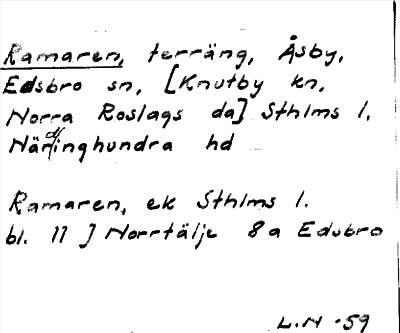 Ramaren, terräng, Åsby,
Edsbro sn, [Knutby kn,
Norra Roslags da] Sthlms l,
Närdinghundra hd
Ramaren, ek Sthlms l.
bl. 11 J Norrtälje 8a Edsbro
L.N -59